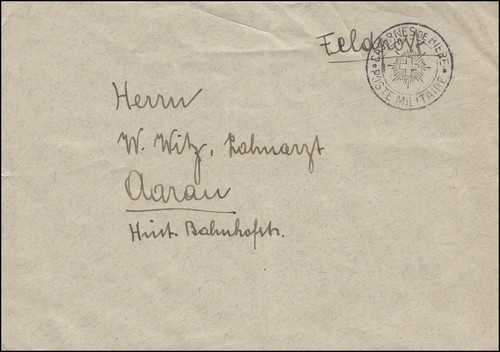 Feldpost
CASERNES DE BIERE
POSTE MILITAIRE
Herrn
W. Witz, Zahnarzt
Aarau
Hint. Bahnhofstr.